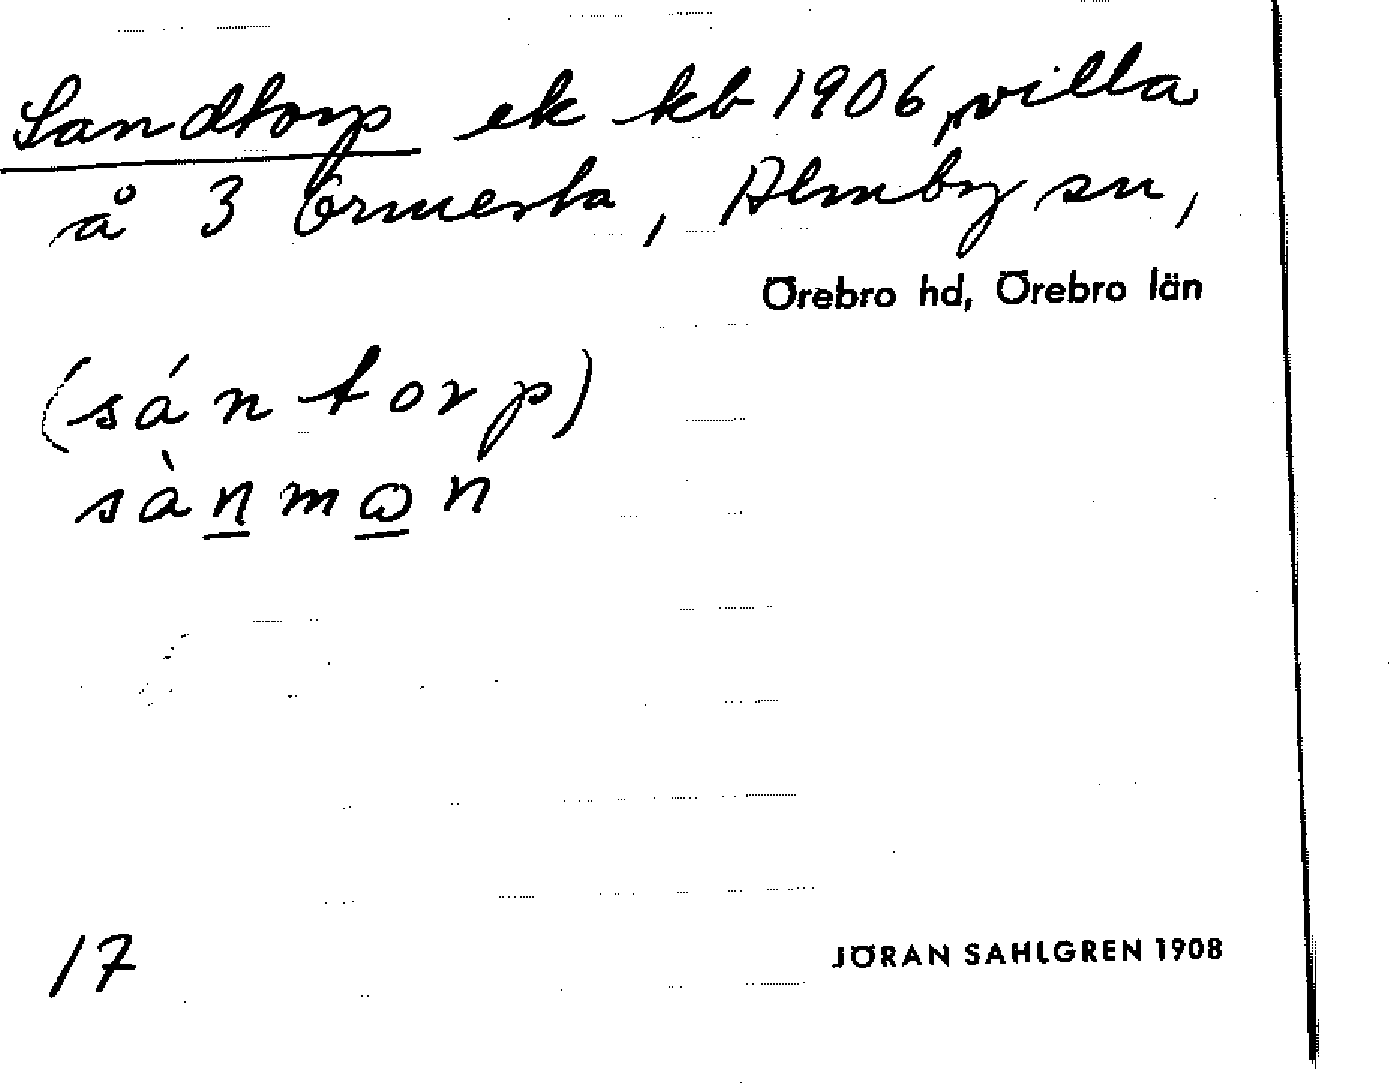 Sandtorp ek kb 1906, villa
å 3 Ormesta, Almby sn,
Örebro hd, Örebro län
(sántorp)
sànmωn
17 JÖRAN SAHLGREN 1908